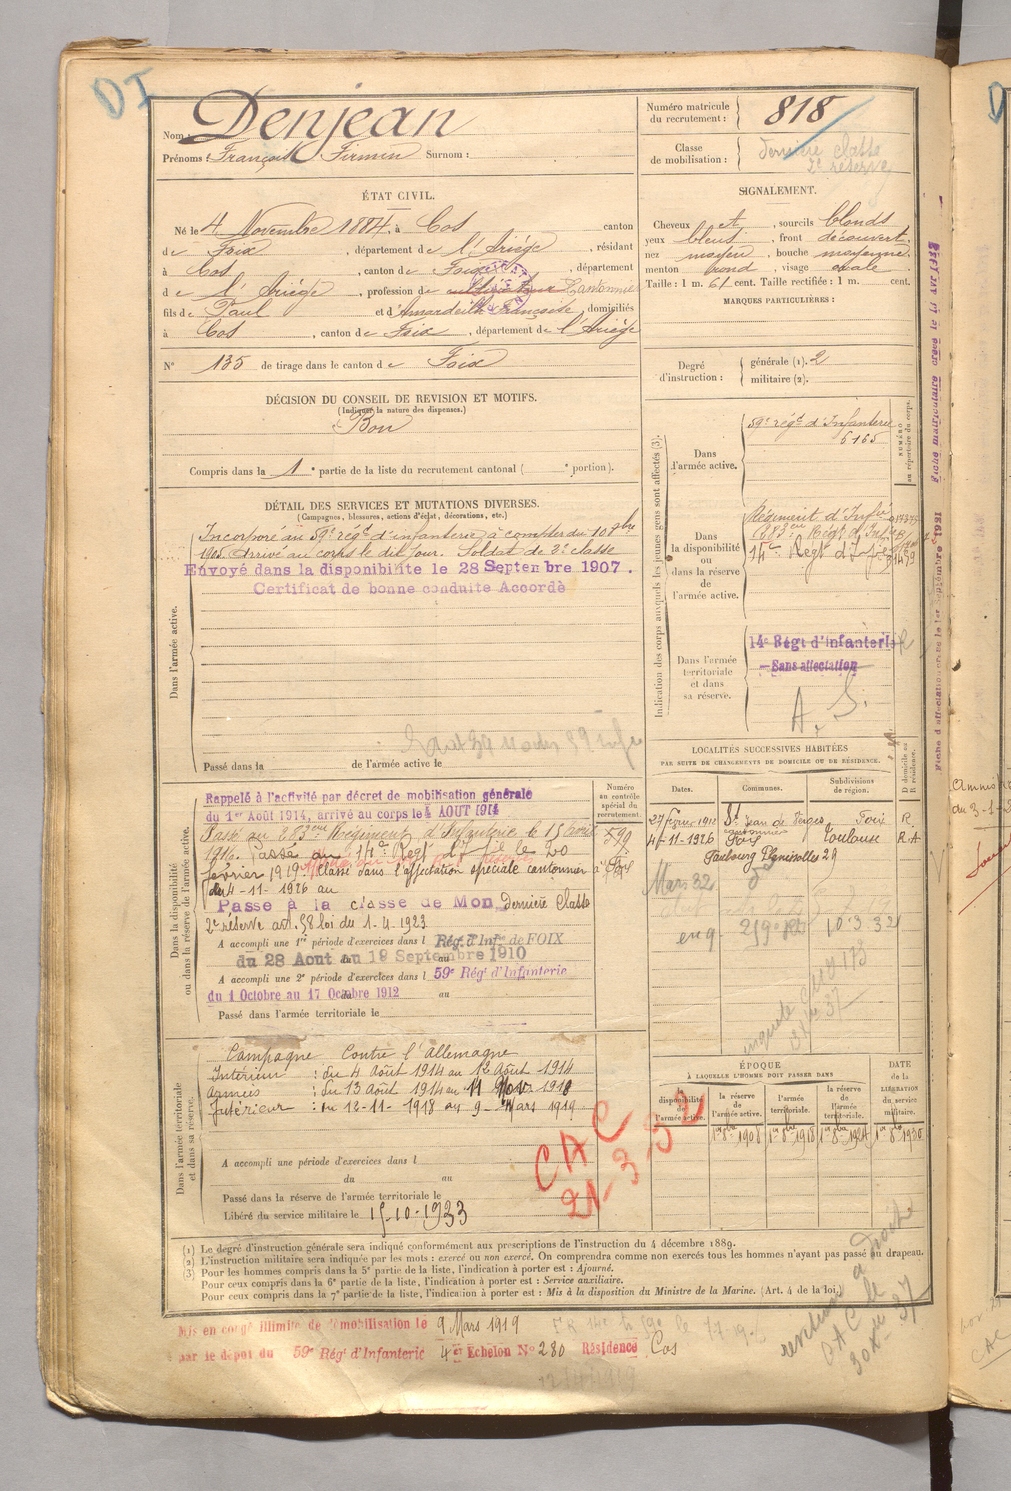 DI
Nom : Denjean
Prénoms : François Firmin Surnom :
Numéro matricule du recrutement : 818
Classe de mobilisation : dernière classe 2e réserve
ÉTAT CIVIL.
Né le 4 Novembre 1884, à Cos canton
de Foix, département de l'Ariège, résidant
à Cos, canton de Foix, département
d e l'Ariège, profession de cultivateur Cantonnier
fils de Paul et d'Amardeilh Françoise, domiciliés
à Cos, canton de Foix, département de l'Ariège
N° 135 de tirage dans le canton de Foix
SIGNALEMENT.
Cheveux et, sourcils blonds
yeux bleus, front découvert,
nez moyen, bouche moyenne,
menton rond, visage ovale
Taille : 1 m. 61 cent. Taille rectifiée : 1 m. cent.
MARQUES PARTICULIÈRES :
Degré d'instruction : générale (1). 2
militaire (2).
DÉCISION DU CONSEIL DE REVISION ET MOTIFS.
(Indiquer la nature des dispenses.)
Bon
Compris dans la 1e partie de la liste du recrutement cantonal ( e portion).
DÉTAIL DES SERVICES ET MUTATIONS DIVERSES.
(Campagnes, blessures, actions d'éclat, décorations, etc.)
Dans l'armée active.
Incorporé au 59e régt d'infanterie à compter du 10 8bre
1905. Arrivé au corps le dit jour. Soldat de 2e classe
Envoyé dans la disponibilité le 28 Septembre 1907.
Certificat de bonne conduite Accordé
Passé dans la de l'armée active le
Indication des corps auxquels les jeunes gens sont affectés (3).
NUMÉRO au répertoire du corps.
Dans l'armée active.
59e régt d'Infanterie
6165
Dans la disponibilité ou dans la réserve de l'armée active.
Régiment d'Infie
283ème Régt d'Infie
14e Regt d'Infie
Dans l'armée territoriale et dans sa réserve.
14e Régt d'Infanterie
Sans affectation
A. S.
LOCALITÉS SUCCESSIVES HABITÉES
PAR SUITE DE CHANGEMENTS DE DOMICILE OU DE RÉSIDENCE.
Dates. Communes. Subdivisions de région. D domicile ou R résidence.
27 février 1912 St Jean de Verges Foix R.
4-11-1926 cantonnier Foix Toulouse R.A.
Faubourg Planissolles 29
Mars 32
Dans la disponibilité ou dans la réserve de l'armée active.
Numéro au contrôle spécial du recrutement.
Rappelé à l'activité par décret de mobilisation générale
du 1er Août 1914, arrivé au corps le 4 AOUT 1914
Passé au 283ème Régiment d'Infanterie le 15 avril
1916. Passé au 14e Regt d'Infie le 20
février 1919. Classé dans l'affectation spéciale cantonnier à Foix
du 4-11-1926 au
Passé à la classe de Mon Dernière Classe
2e réserve art. 58 loi du 1-4-1923
A accompli une 1re période d'exercices dans l Rég. d'Inf. de FOIX
du 28 Aout au 19 Septembre 1910
A accompli une 2e période d'exercices dans l 59e Rég. d'Infanterie
du 1 Octobre au 17 Octobre 1912 au
Passé dans l'armée territoriale le
Dans l'armée territoriale et dans sa réserve.
Campagne Contre l'Allemagne
Intérieur : du 4 Août 1914 au 12 Août 1914
Armées : du 13 Août 1914 au 11 Nov. 1918
Intérieur : du 12-11-1918 au 9 Mars 1919
A accompli une période d'exercices dans l
du au
Passé dans la réserve de l'armée territoriale le
Libéré du service militaire le 15-10-1933
CAC
21-3-32
ÉPOQUE
À LAQUELLE L'HOMME DOIT PASSER DANS
DATE de la LIBÉRATION du service militaire.
la disponibilité de l'armée active. la réserve de l'armée active. l'armée territoriale. la réserve de l'armée territoriale.
1er 8bre 1908 1er 8bre 1918 1er 8bre 1924 1er 8bre 1930
(1) Le degré d'instruction générale sera indiqué conformément aux prescriptions de l'instruction du 4 décembre 1889.
(2) L'instruction militaire sera indiquée par les mots : exercé ou non exercé. On comprendra comme non exercés tous les hommes n'ayant pas passé au drapeau.
(3) Pour les hommes compris dans la 5e partie de la liste, l'indication à porter est : Ajourné.
Pour ceux compris dans la 6e partie de la liste, l'indication à porter est : Service auxiliaire.
Pour ceux compris dans la 7e partie de la liste, l'indication à porter est : Mis à la disposition du Ministre de la Marine. (Art. 4 de la loi.)
Mis en congé illimité de démobilisation le 9 Mars 1919
par le dépôt du 59e Rég. d'Infanterie 4e Echelon N° 280 Résidence Cos